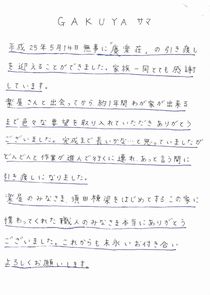 GAKUYA サマ
平成25年5月14日無事に慶楽荘、の引き渡し
を迎えることができました。家族一同とても感謝
しています。
楽屋さんと出会ってから約1年間わが家が出来る
まで色々な要望を取り入れていただきありがとう
ございました。完成まで長いかな…と思っていましたが
どんどん作業が進んで行くに連れ、あっと言う間に
引き渡しになりました。
楽屋のみなさま、須田棟梁をはじめとするこの家に
携わってくれた職人のみなさま本当にありがとう
ございました。これからも末永いお付き合い
よろしくお願いします。